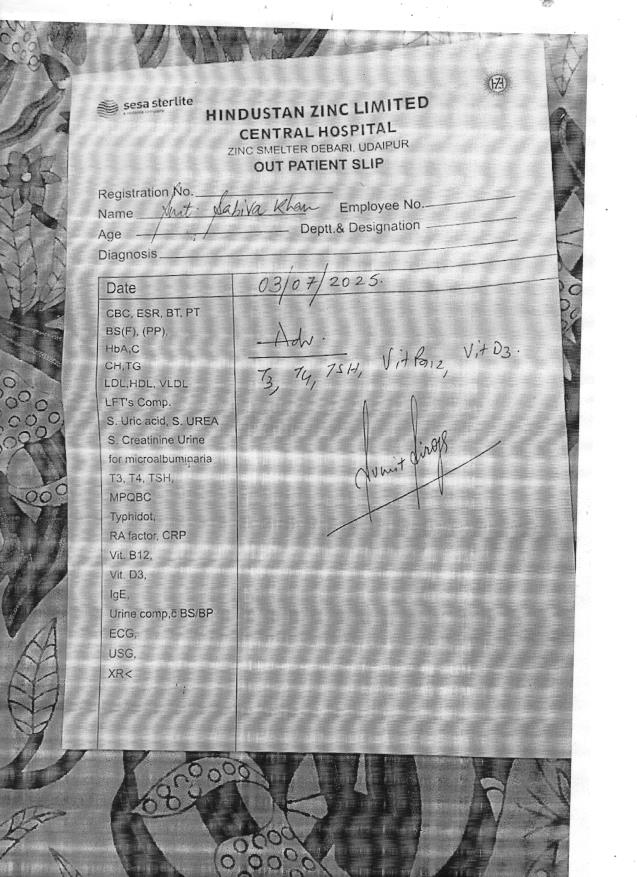 sesa sterlite
HZ
HINDUSTAN ZINC LIMITED
CENTRAL HOSPITAL
ZINC SMELTER DEBARI, UDAIPUR
OUT PATIENT SLIP
Registration No.
Name Smt. Sabiva Khan Employee No.
Age Deptt.& Designation
Diagnosis
Date 03/07/2025.
CBC, ESR, BT, PT
BS(F), (PP),
HbA,C
CH,TG
LDL,HDL, VLDL
LFT's Comp.
S. Uric acid, S. UREA
S. Creatinine Urine
for microalbuminaria
T3, T4, TSH,
MPQBC
Typhidot,
RA factor, CRP
Vit. B12,
Vit. D3,
IgE,
Urine comp,c̄ BS/BP
ECG,
USG,
XR<
Adv.
T3, T4, TSH, Vit B12, Vit D3.